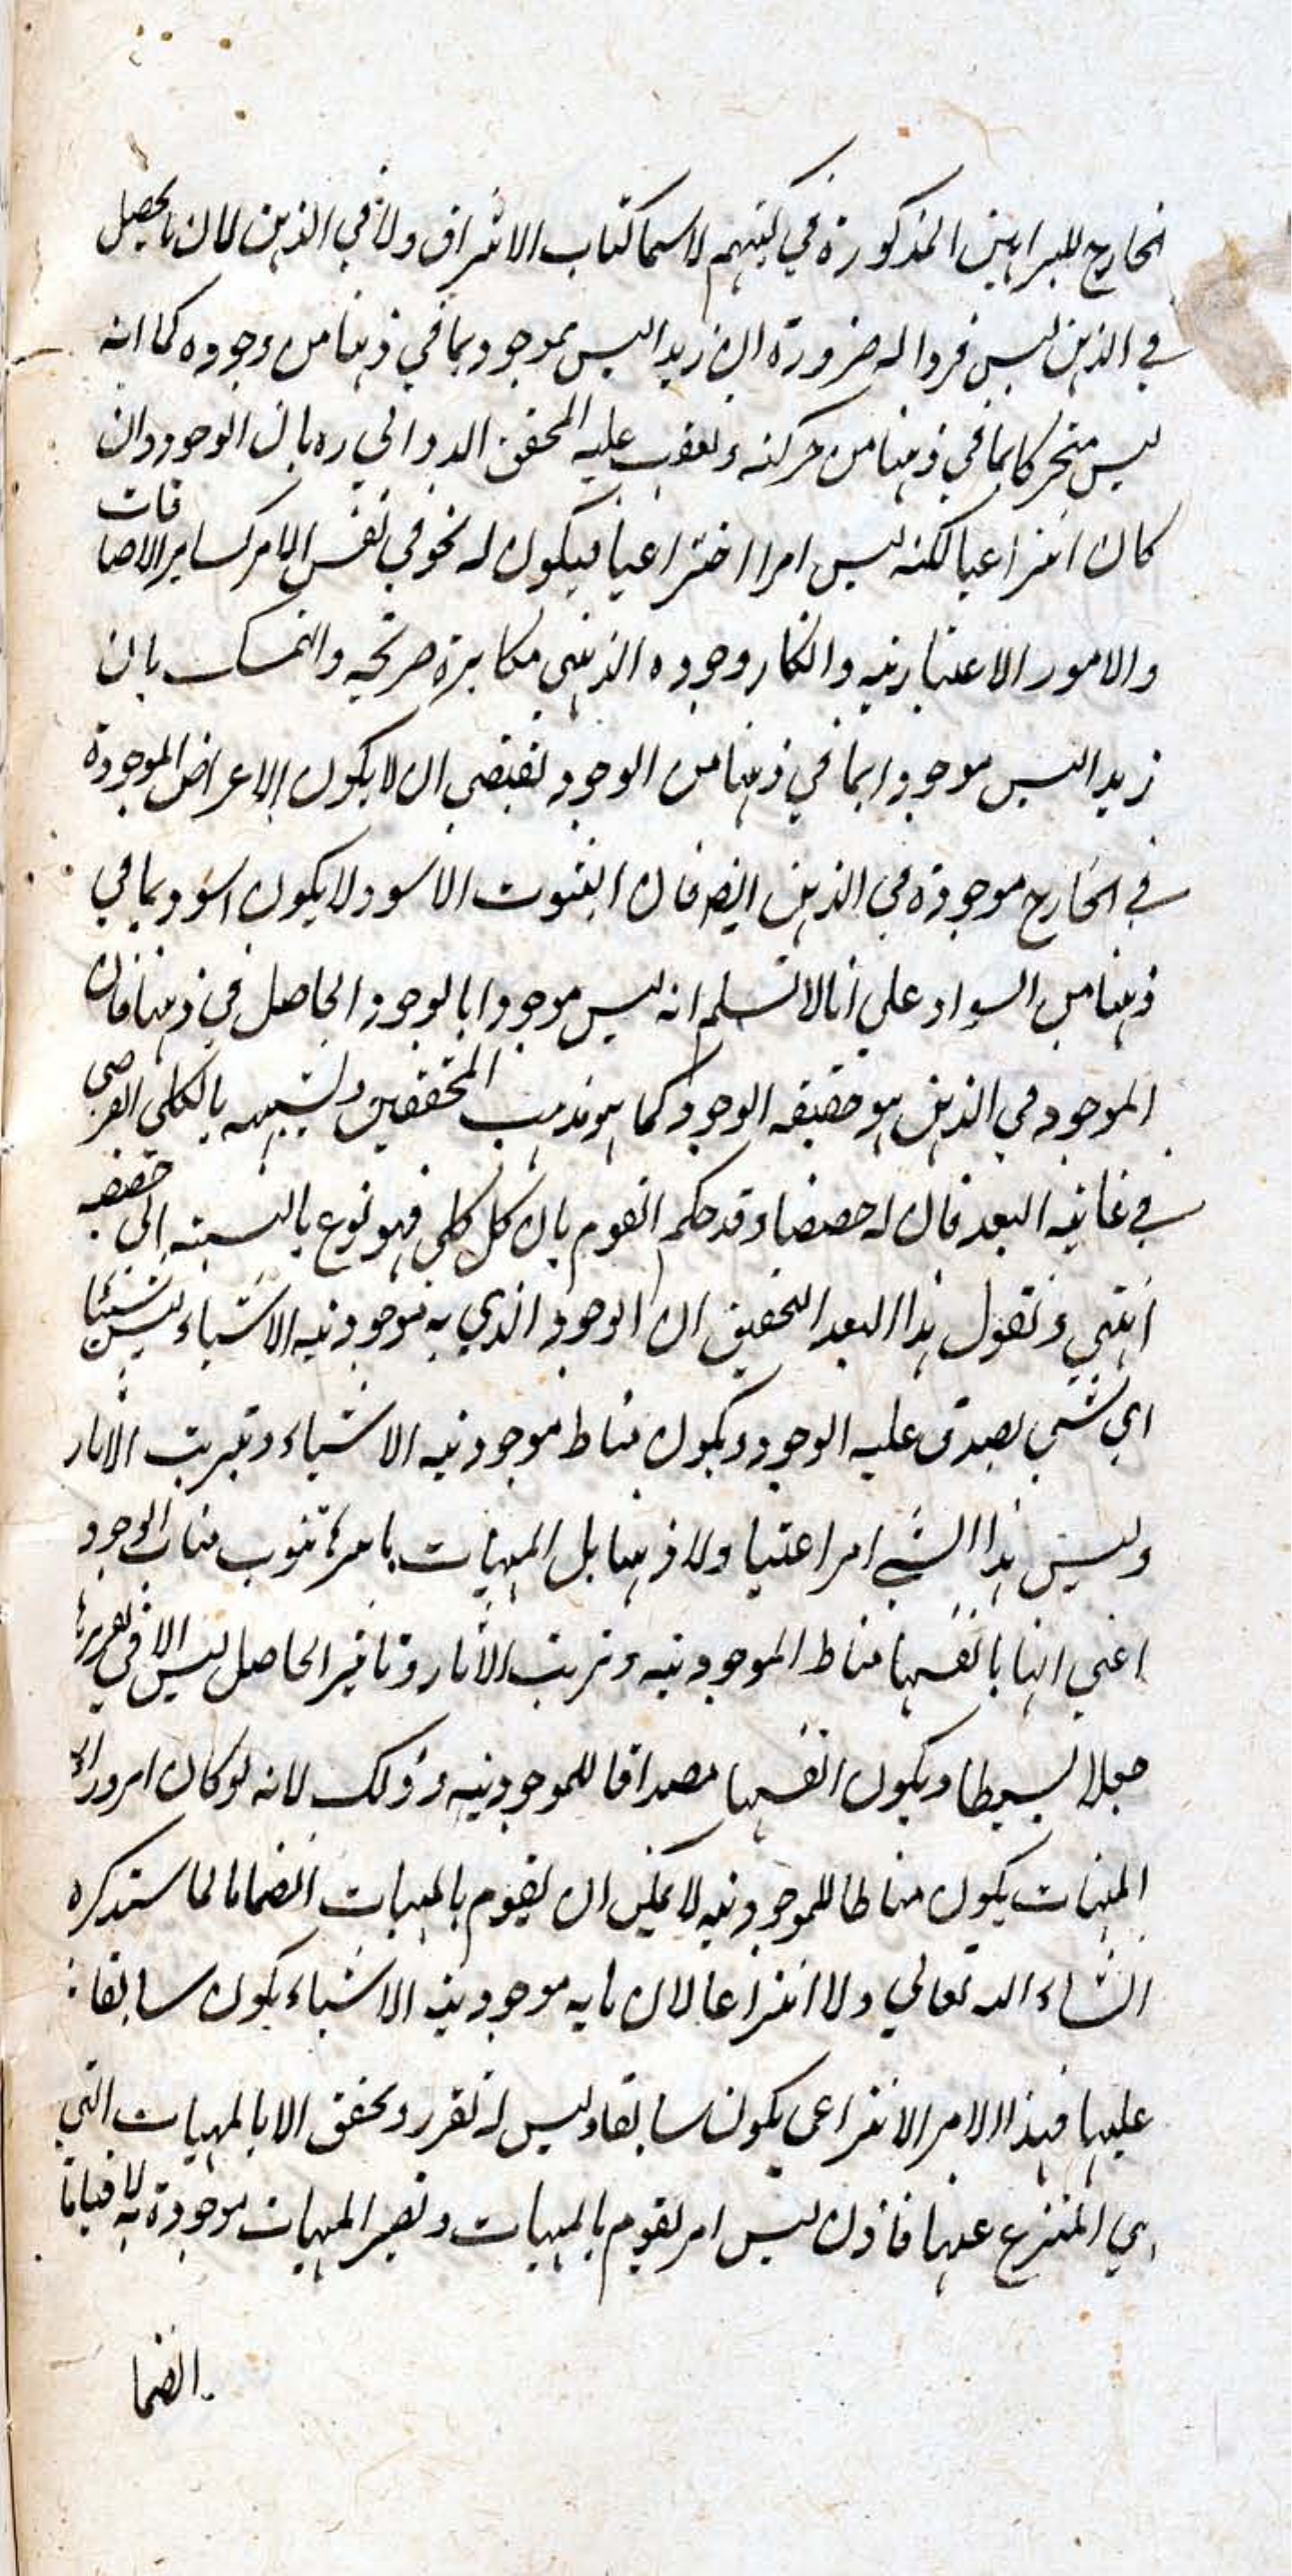 الخارج للبراهين المذكورة في كتبهم لا سيما كتاب الاشراق ولا في الذهن لان ما يحصل
في الذهن ليس فردا له ضرورة ان زيدا ليس بموجود بما في ذهننا من وجوده كما انه
ليس متحركا بما في ذهننا من حركته وتعقب عليه المحقق الدواني ره بان الوجود وان
كان انتزاعيا لكنه ليس امرا اختراعيا فيكون له نحو في نفس الامر كساير الاضافات
والامور الاعتبارية وانكار وجوده الذهني مكابرة صريحة والتمسك بان
زيدا ليس موجودا بما في ذهننا من الوجود تقتضي ان لا يكون الاعراض الموجودة
في الخارج موجودة في الذهن ايضا فان الثبوت الاسود لا يكون اسود بما في
ذهننا من السواد علي انا لا نسلم انه ليس موجودا بالوجود الحاصل في ذهننا فان
الموجود في الذهن هو حقيقة الوجود كما هو مذهب المحققين وتشبيهه بالكلي الفرضي
في غاية البعد فان له حصصا وقد حكم القوم بان كل كلي فهو نوع بالنسبة الى حصصه
انتهي ونقول هذا البعد التحقيق ان الوجود الذي به موجودية الاشياء ليس شيئا
اي شي يصدق عليه الوجود ويكون مناط موجودية الاشياء وترتب الاثار
وليس هذا الشي امرا عينيا ولا ذهنيا بل المهيات بامرها تنوب مناب الوجود
اعني انها بانفسها مناط الموجودية وترتب الاثار وتاثير الجاعل ليس الا في تقررها
جعلا بسيطا ويكون انفسها مصداقا للموجودية وذلك لانه لو كان امر وراء
المهيات يكون مناطا للموجودية لا يمكن ان يقوم بالمهيات انضماما لما ستذكره
انشاء الله تعالي ولا انتزاعا لان ما به موجودية الاشياء يكون سابقا
عليها فهذا الامر الانتزاعي يكون سابقا وليس له تقرر وتحقق الا بالمهيات التي
هي المنتزع عنها فاذن ليس امر يقوم بالمهيات وتصير المهيات موجودة به لا قياما
انضما